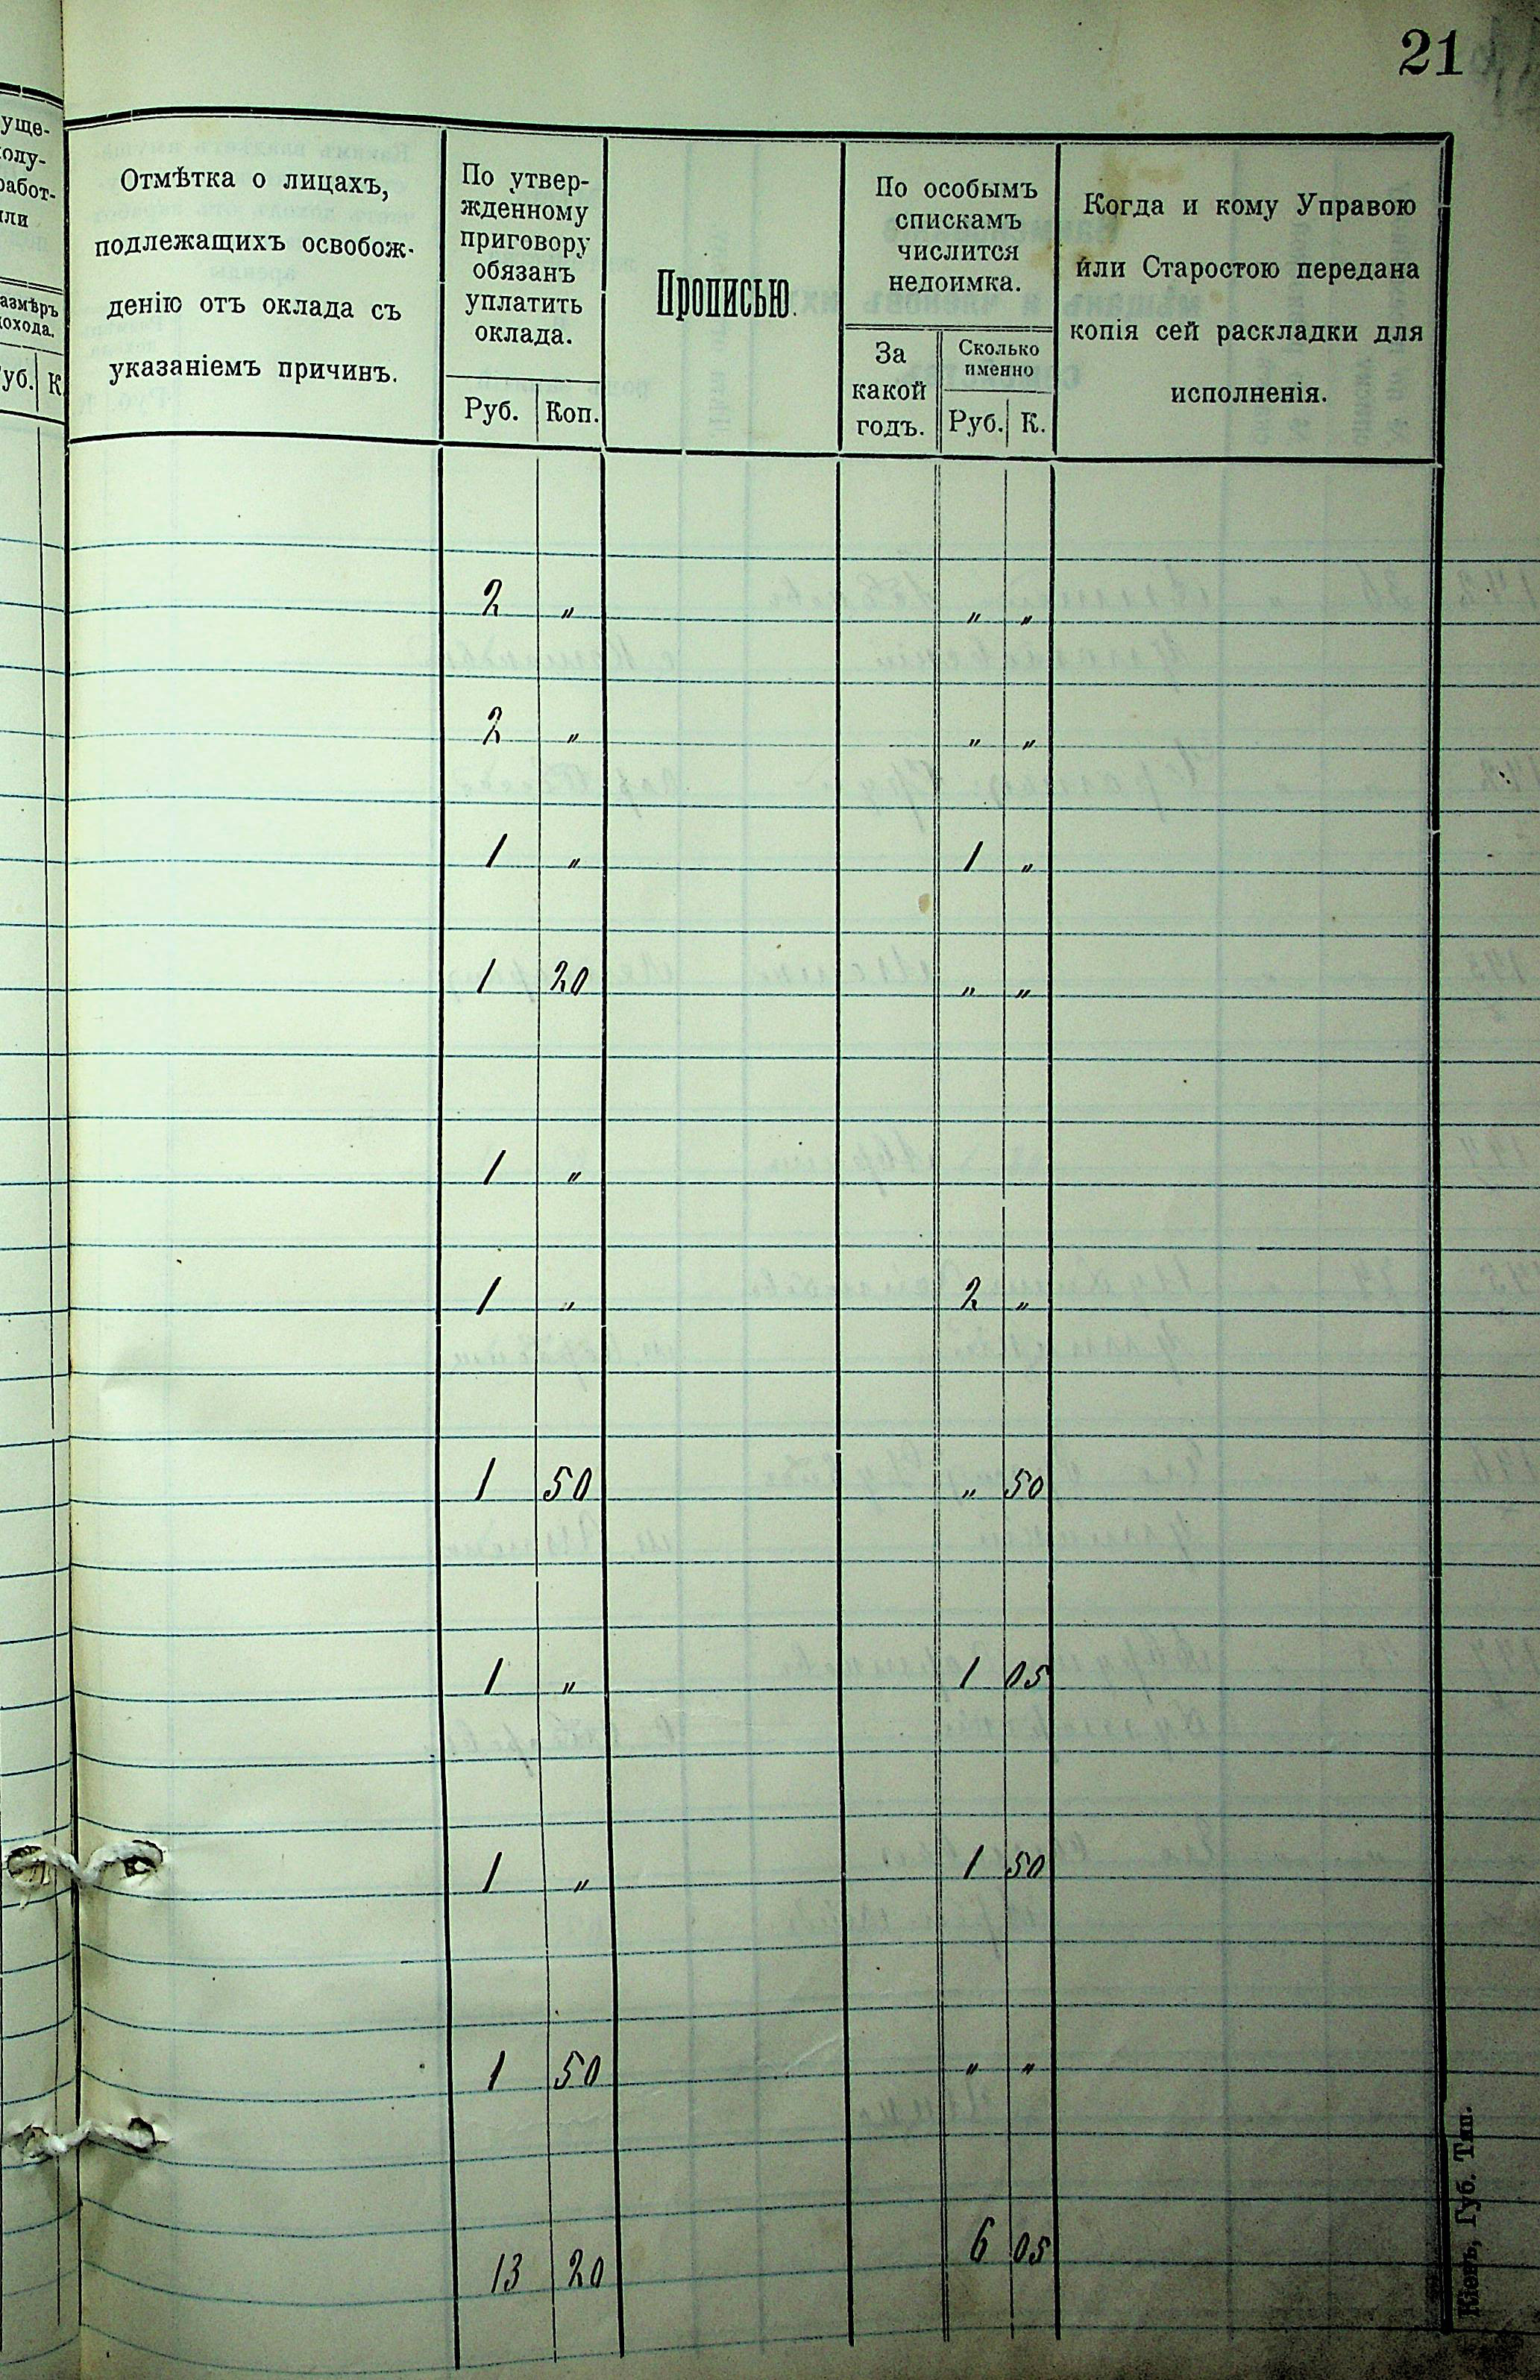 21
уще-
олу-
работ-
или
азмѣръ
охода.
уб. К
Отмѣтка о лицахъ,
подлежащихъ освобож-
денію отъ оклада съ
указаніемъ причинъ.
По утвер-
жденному
приговору
обязанъ
уплатить
оклада.
Руб. Коп.
Прописью.
По особымъ
спискамъ
числится
недоимка.
За
какой
годъ.
Сколько
именно
Руб. К.
Когда и кому Управою
или Старостою передана
копія сей раскладки для
исполненія.
2 „ „ „
2 „ „ „
1 „ 1 „
1 20 „ „
1 „
1 „ 2 „
1 50 „ 50
1 „ 1 05
1 „ 1 50
1 50 „ „
13 20 6 05
Кіевъ, Губ. Тип.